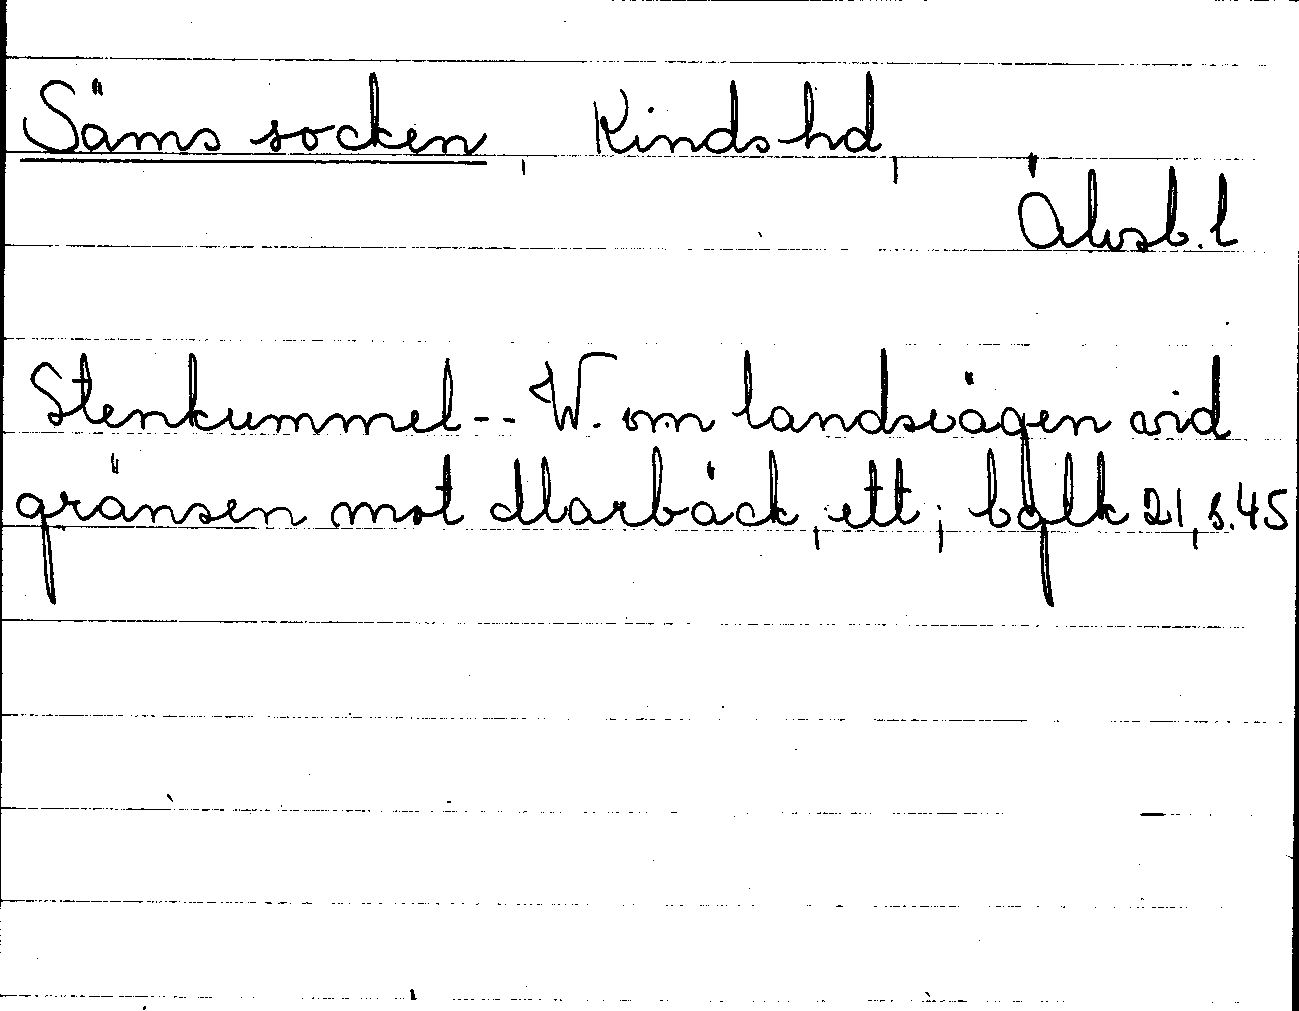 Säms socken, Kinds hd,
Älvsb. l
Stenkummel -- W. om landsvägen vid
gränsen mot Marbäck, ett; bglk 21, s. 45